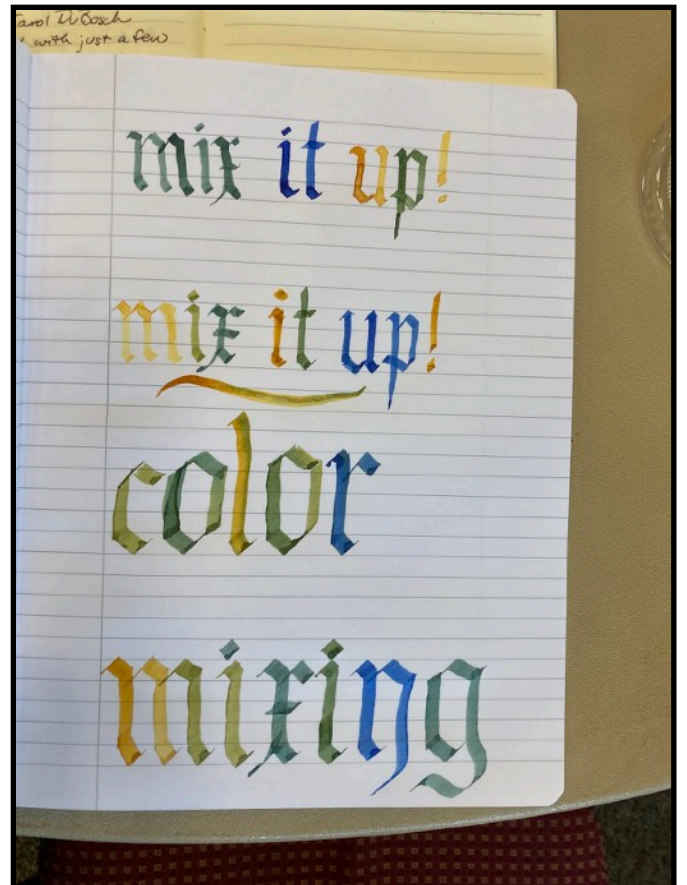 Carol DuBosch
with just a few
mix it up!
mix it up!
color
mixing